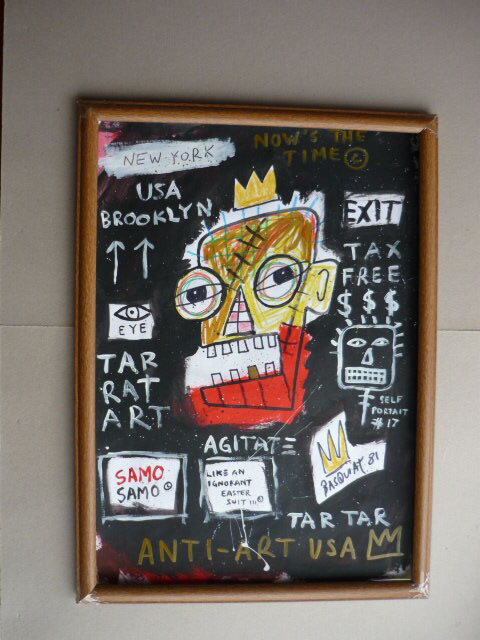 NEW YORK
NOW'S THE
TIME ©
USA
BROOKLYN
EXIT
TAX
FREE
$ $ $
EYE
TAR
RAT
ART
SELF
PORTAIT
#17
AGITATE
SAMO
SAMO©
LIKE AN
IGNORANT
EASTER
SUIT !!!©
BASQUIAT 81
TAR TAR
ANTI-ART USA